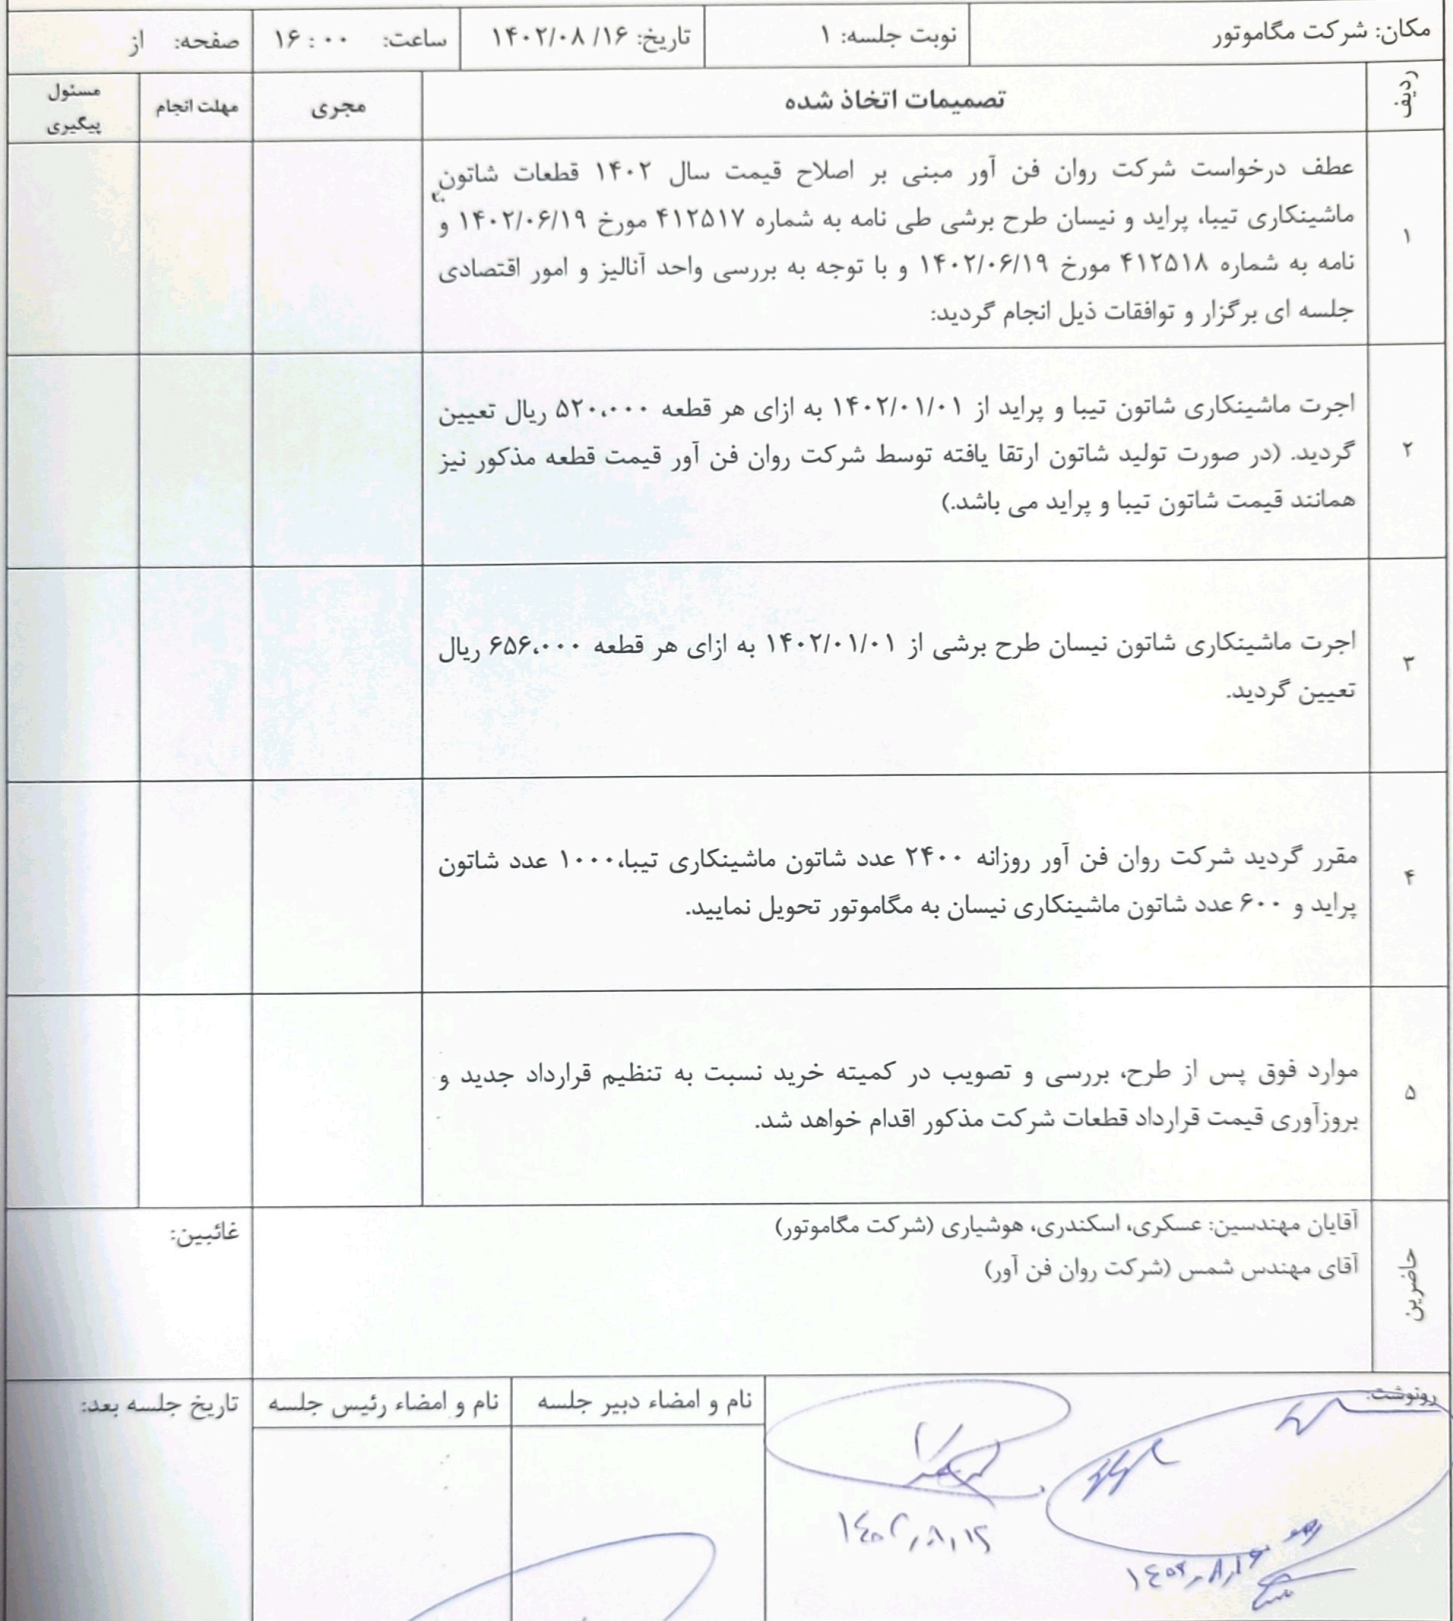 مکان: شرکت مگاموتور
نوبت جلسه: ۱
تاریخ: ۱۶/ ۱۴۰۲/۰۸
ساعت: ۱۶:۰۰
صفحه: از
ردیف
تصمیمات اتخاذ شده
مجری
مهلت انجام
مسئول
پیگیری
۱
عطف درخواست شرکت روان فن آور مبنی بر اصلاح قیمت سال ۱۴۰۲ قطعات شاتون
ماشینکاری تیبا، پراید و نیسان طرح برشی طی نامه به شماره ۴۱۲۵۱۷ مورخ ۱۴۰۲/۰۶/۱۹ و
نامه به شماره ۴۱۲۵۱۸ مورخ ۱۴۰۲/۰۶/۱۹ و با توجه به بررسی واحد آنالیز و امور اقتصادی
جلسه ای برگزار و توافقات ذیل انجام گردید:
۲
اجرت ماشینکاری شاتون تیبا و پراید از ۱۴۰۲/۰۱/۰۱ به ازای هر قطعه ۵۲۰،۰۰۰ ریال تعیین
گردید. (در صورت تولید شاتون ارتقا یافته توسط شرکت روان فن آور قیمت قطعه مذکور نیز
همانند قیمت شاتون تیبا و پراید می باشد.)
۳
اجرت ماشینکاری شاتون نیسان طرح برشی از ۱۴۰۲/۰۱/۰۱ به ازای هر قطعه ۶۵۶،۰۰۰ ریال
تعیین گردید.
۴
مقرر گردید شرکت روان فن آور روزانه ۲۴۰۰ عدد شاتون ماشینکاری تیبا،۱۰۰۰ عدد شاتون
پراید و ۶۰۰ عدد شاتون ماشینکاری نیسان به مگاموتور تحویل نمایید.
۵
موارد فوق پس از طرح، بررسی و تصویب در کمیته خرید نسبت به تنظیم قرارداد جدید و
بروزآوری قیمت قرارداد قطعات شرکت مذکور اقدام خواهد شد.
حاضرین
آقایان مهندسین: عسکری، اسکندری، هوشیاری (شرکت مگاموتور)
آقای مهندس شمس (شرکت روان فن آور)
غائبین:
رونوشت:
نام و امضاء دبیر جلسه
نام و امضاء رئیس جلسه
تاریخ جلسه بعد: